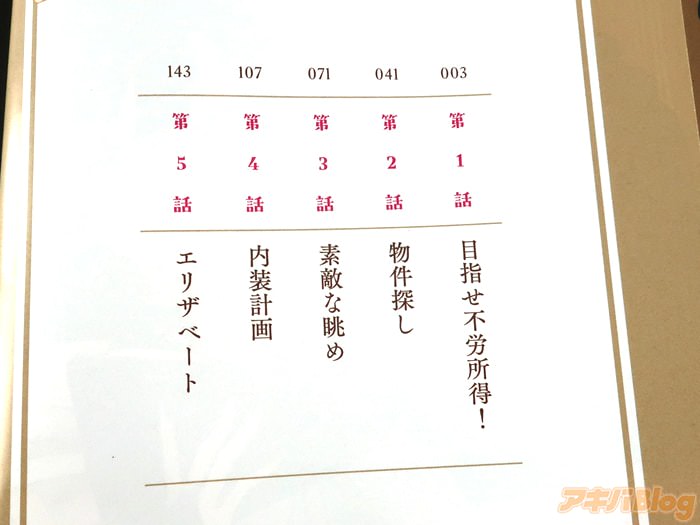 003
第1話
目指せ不労所得！
041
第2話
物件探し
071
第3話
素敵な眺め
107
第4話
内装計画
143
第5話
エリザベート
アキバBlog